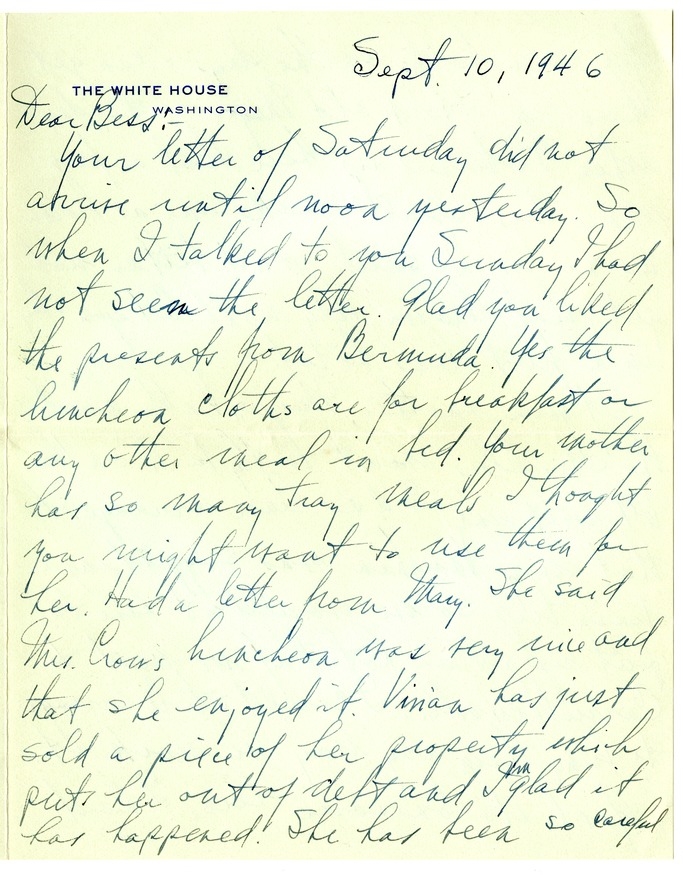 Sept. 10, 1946
THE WHITE HOUSE
WASHINGTON
Dear Bess:-
Your letter of Saturday did not
arrive until noon yesterday. So
when I talked to you Sunday I had
not seen the letter. Glad you liked
the presents from Bermuda. Yes the
luncheon cloths are for breakfast or
any other meal in bed. Your mother
has so many tray meals I thought
you might want to use them for
her. Had a letter from Mary. She said
Mrs. Crow's luncheon was very nice and
that she enjoyed it. Vivian has just
sold a piece of her property which
puts her out of debt and I'm glad it
has happened. She has been so careful